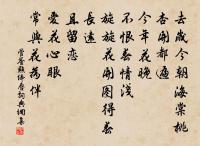 去歲今朝海棠桃
杏開都遍
今年花晚
不恨春情淺
旋旋花開圖得春
長遠
且留戀
愛花心眼
常與花為伴
管鑒點絳唇詞典網集